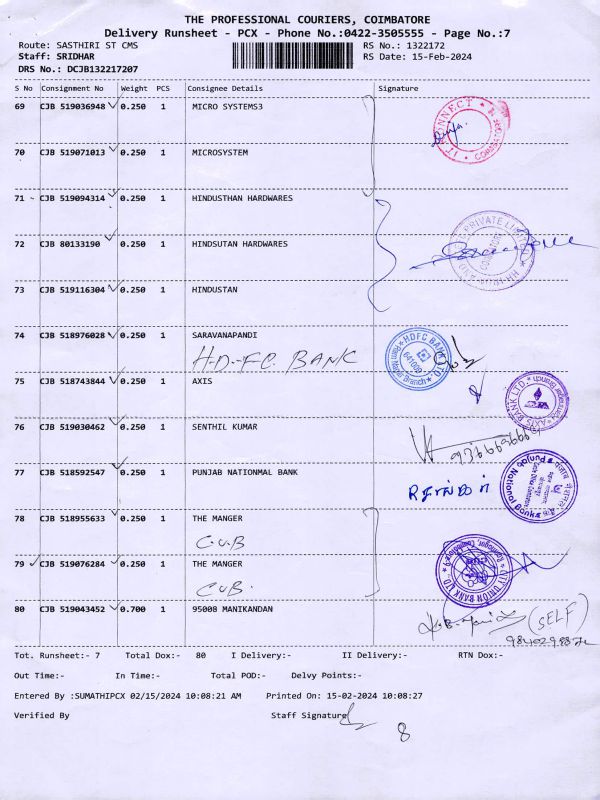 THE PROFESSIONAL COURIERS, COIMBATORE
Delivery Runsheet - PCX - Phone No.:0422-3505555 - Page No.:7
Route: SASTHIRI ST CMS RS No.: 1322172
Staff: SRIDHAR RS Date: 15-Feb-2024
DRS No.: DCJB132217207
S No Consignment No Weight PCS Consignee Details Signature
69 CJB 519036948 0.250 1 MICRO SYSTEMS3
70 CJB 519071013 0.250 1 MICROSYSTEM
71 CJB 519094314 0.250 1 HINDUSTHAN HARDWARES
72 CJB 80133190 0.250 1 HINDSUTAN HARDWARES
73 CJB 519116304 0.250 1 HINDUSTAN
74 CJB 518976028 0.250 1 SARAVANAPANDI
H.D.FC. BANK
HDFC BANK LTD.
641009
Ram Nagar Branch
75 CJB 518743844 0.250 1 AXIS
AXIS BANK LTD.
76 CJB 519030462 0.250 1 SENTHIL KUMAR
77 CJB 518592547 0.250 1 PUNJAB NATIONMAL BANK
Punjab National Bank
78 CJB 518955633 0.250 1 THE MANGER
C.U.B
79 CJB 519076284 0.250 1 THE MANGER
CUB.
CITY UNION BANK LTD
80 CJB 519043452 0.700 1 95008 MANIKANDAN
(SELF)
Tot. Runsheet:- 7 Total Dox:- 80 I Delivery:- II Delivery:- RTN Dox:-
Out Time:- In Time:- Total POD:- Delvy Points:-
Entered By :SUMATHIPCX 02/15/2024 10:08:21 AM Printed On: 15-02-2024 10:08:27
Verified By Staff Signature
8